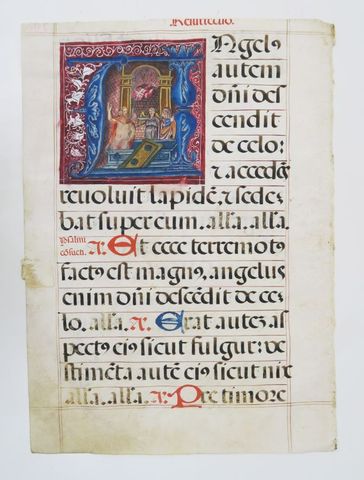 ngelꝰ
autem
dñi des
cendit
de celo:
⁊ accedẽs
reuoluit lapidẽ, ⁊ sede
bat super eum. alla. alla.
Psalmi
cõsueti. A. Et ecce terremotꝰ
factꝰ est magnꝰ, angelus
enim dñi descẽdit de ce
lo. alla. A. Erat autẽ as
pectꝰ eiꝰ sicut fulgur: ve
stimẽta autẽ eiꝰ sicut nix
alla. alla. A. Pre timore